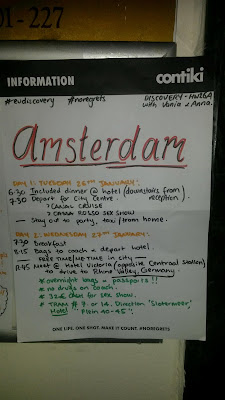 01 - 227
INFORMATION
contiki
#eudiscovery #noregrets
DISCOVERY - HW26A
with Vania & Anna.
Amsterdam
DAY 1: TUESDAY 26TH JANUARY:
6:30 Included dinner @ hotel (downstairs from reception)
7:30 Depart for City Centre.
> CANAL CRUISE
> CASA ROSSO SEX SHOW
— Stay out to party, taxi/tram home.
DAY 2: WEDNESDAY 27TH JANUARY:
7:30 Breakfast
8:15 Bags to coach & depart hotel.
— FREE TIME/UP TIME in city —
Meet @ Hotel Victoria (opposite Centraal Station)
to drive to Rhine Valley, Germany.
* overnight bags + passports!!
* no drugs on coach.
* cash for sex show.
* TRAM # 7 or 14. Direction 'Slotermeer'
Hotel 'Plein 40-45'.
ONE LIFE. ONE SHOT. MAKE IT COUNT. #NOREGRETS